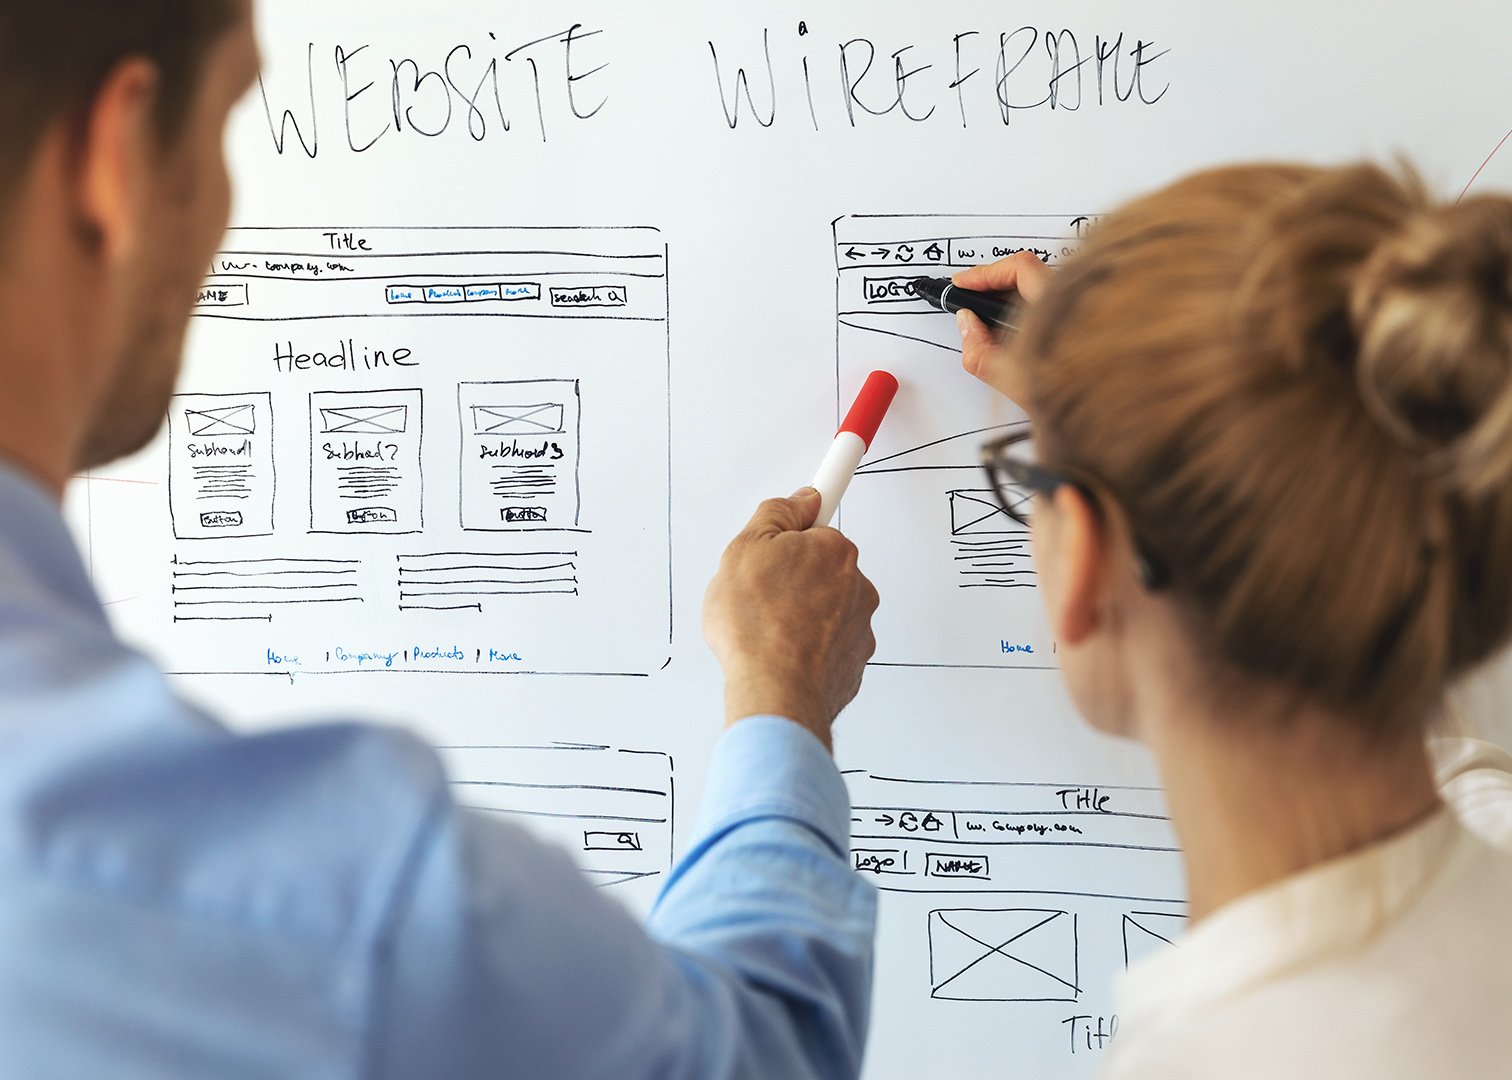 WEBSITE WIREFRAME
Title
w. company.com
NAME Home Products Company More search
Headline
Subhead1 Subhead2 Subhead3
Button Button Button
Home | Company | Products | More
w. company.
LOGO
Home |
Title
w. company.com
Logo | NAME